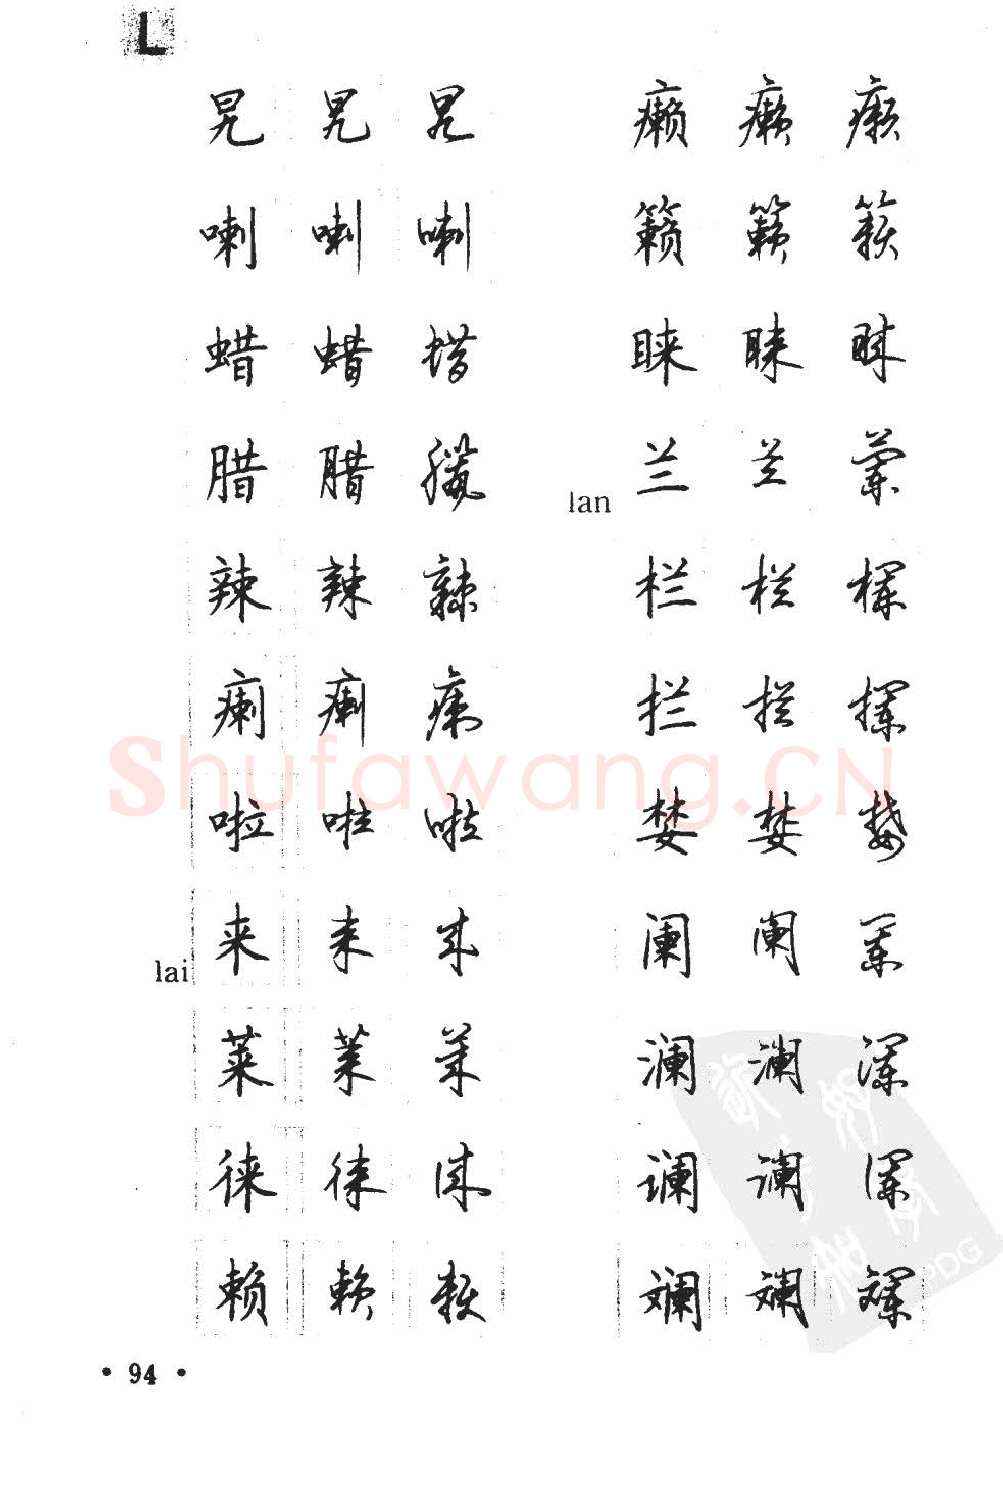 L
旯 旯 旯
喇 喇 喇
蜡 蜡 蜡
腊 腊 臘
辣 辣 辣
瘌 瘌 瘌
啦 啦 啦
lai 来 来 来
莱 莱 莱
徕 徕 徕
赖 赖 赖
癞 癞 癞
籁 籁 籁
睐 睐 睐
lan 兰 兰 蘭
栏 栏 欄
拦 拦 攔
婪 婪 婪
阑 阑 阑
澜 澜 澜
谰 谰 谰
斓 斓 斓
• 94 •
Shufawang.CN
PDG